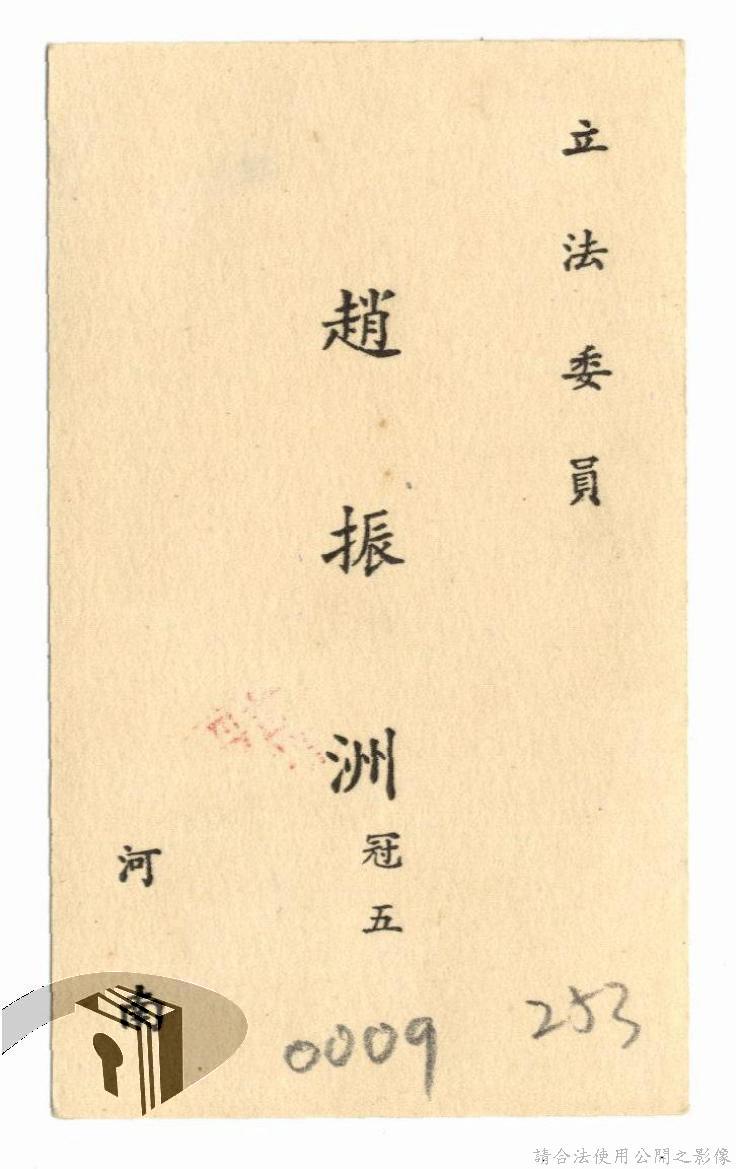 立法委員
趙振洲
冠五
河南
0009
253
請合法使用公開之影像